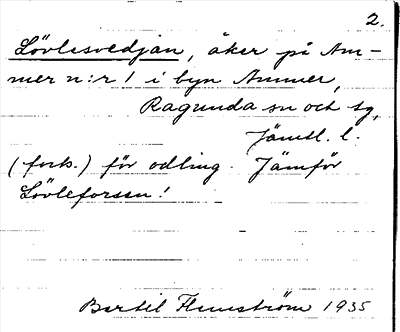 2.
Lövlesvedjan, åker på Am-
mer n:r 1 i byn Ammer,
Ragunda sn och tg,
Jämtl. l.
(forts.) för odling. Jämför
Lövleforsen!
Bertil Flemström 1935